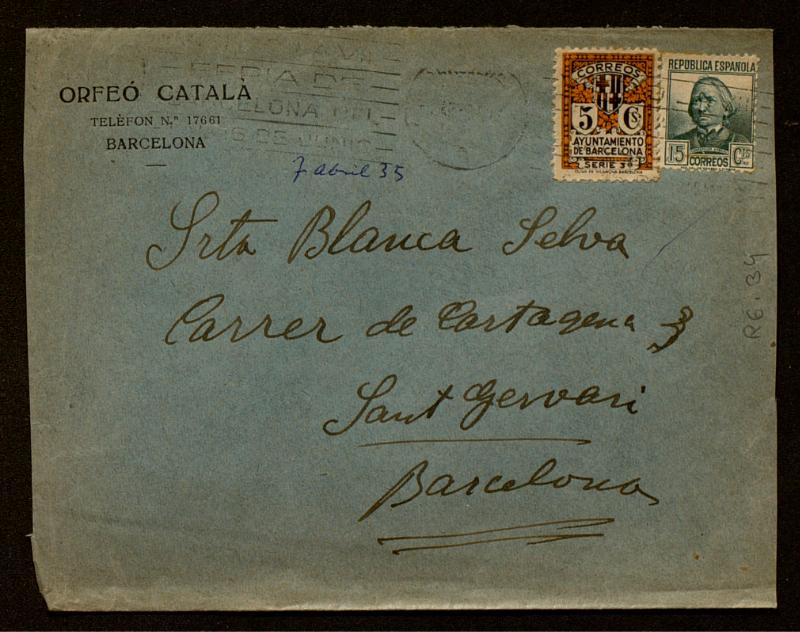 ORFEÓ CATALÀ
TELÈFON N.º 17661
BARCELONA
FERIA DE
DE JUNIO
7 abril 35
CORREOS
5 Cs
AYUNTAMIENTO
DE BARCELONA
SERIE 3ª
REPÚBLICA ESPAÑOLA
15 CORREOS Cts
Srta Blanca Selva
Carrer de Cartagena
Sant Gervasi
Barcelona
RG. 34